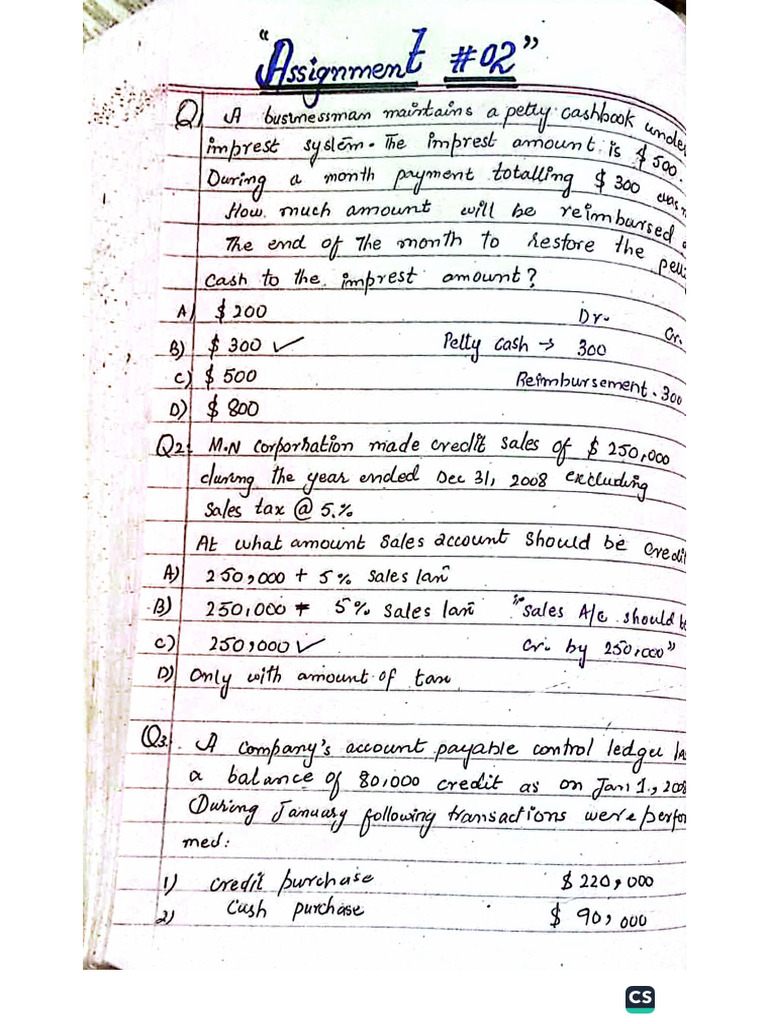 "Assignment #02"
Q1 A businessman maintains a petty cashbook unde
imprest system. The imprest amount is $500.
During a month payment totalling $300 was
How much amount will be reimbursed
The end of the month to restore the
cash to the imprest amount?
A) $200 Dr. Cr.
B) $300 ✓ Petty cash → 300
C) $500 Reimbursement. 300
D) $800
Q2: M.N Corporation made credit sales of $250,000
during the year ended Dec 31, 2008 excluding
sales tax @ 5.%
At what amount Sales account should be credit
A) 250,000 + 5% sales
B) 250,000 5% sales "Sales A/c should b
C) 250,000 ✓ Cr. by 250,000"
D) Only with amount of tax
Q3: A company's account payable control ledger
a balance of 80,000 credit as on Jan 1, 200
During January following transactions were perfor
med:
1) credit purchase $220,000
2) Cash purchase $90,000
CS